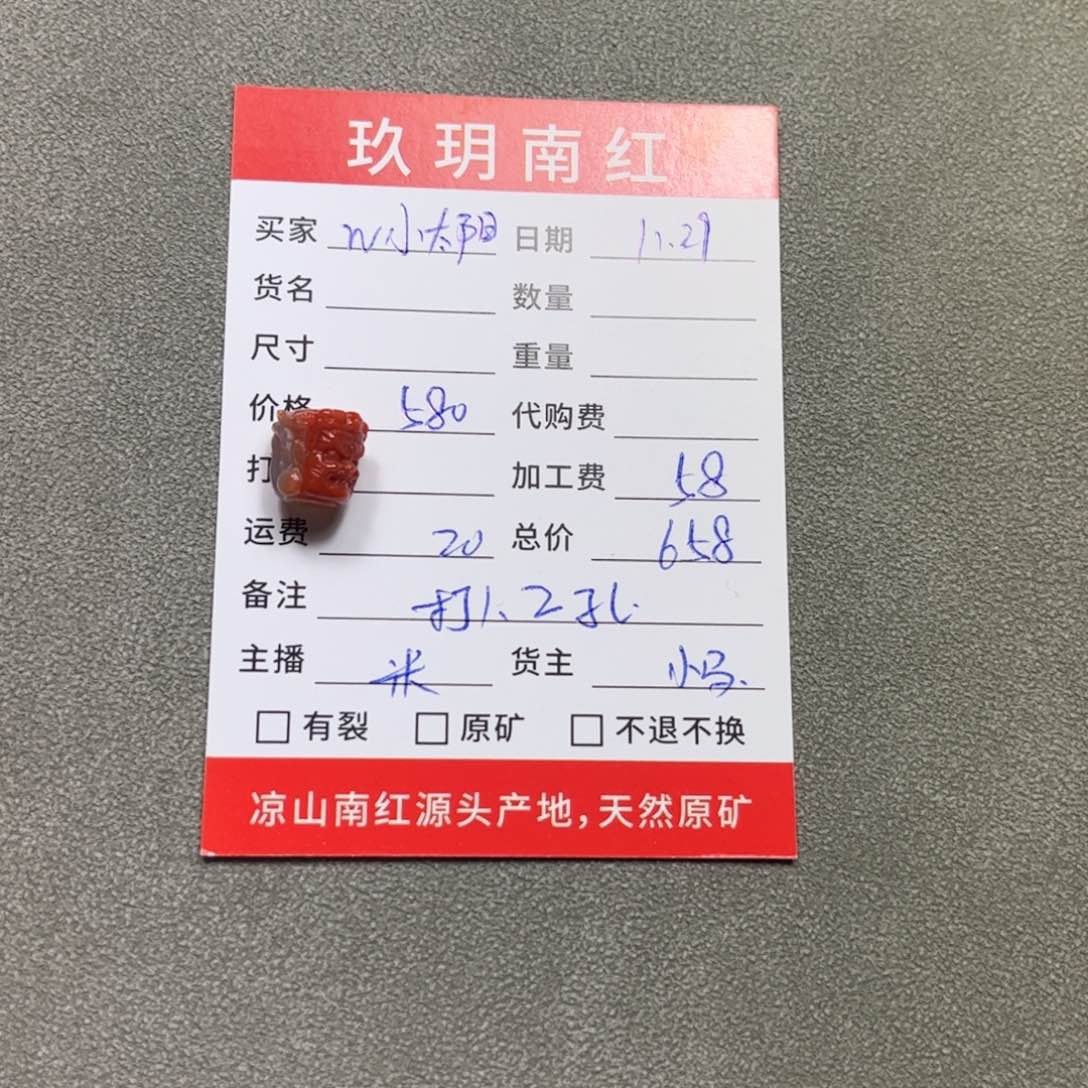 玖玥南红
买家 W小太阳 日期 11.29
货名 数量
尺寸 重量
价格 580 代购费
打 加工费 58
运费 20 总价 658
备注 打1.2孔
主播 米 货主 小马.
有裂 原矿 不退不换
凉山南红源头产地,天然原矿